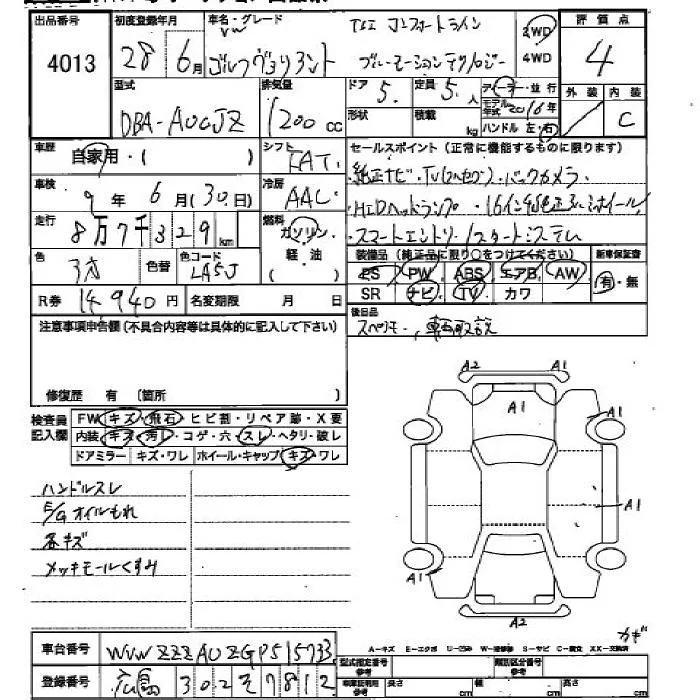 出品番号 初度登録年月 車名・グレード 評価点
4013 28年6月 VW TSI コンフォートライン 2WD 4
ゴルフヴァリアント ブルーモーションテクノロジー 4WD
型式 排気量 ドア 定員 ディーラー・並行 外装 内装
5. 5人 モデル年式 2016年
DBA-AUCJZ 1200cc 形状 積載 kg ハンドル 左・右 C
車歴 自家用・( ) シフト FAT セールスポイント(正常に機能するものに限ります)
車検 9年6月(30日) 冷房 AAC 純正ナビ・TV(フルセグ)・バックカメラ
走行 8万7千329km 燃料 ガソリン・軽油( ) HIDヘッドランプ・16インチ純正アルミホイール
スマートエントリー/スタートシステム
色 色替 色コード LA5J 装備品(純正品に限り○をつけてください) 新車保証書
PS PW ABS エアB AW 有・無
R券 14940円 名変期限 月 日 SR ナビ TV カワ
注意事項申告欄(不具合内容等は具体的に記入して下さい) 後日品
スペアキー、車両取説
修復歴 有 〔箇所 〕
検査員記入欄 FW キズ・飛石・ヒビ割・リペア跡・X要
内装 キズ・汚れ・コゲ・穴・スレ・ヘタリ・破レ
ドアミラー キズ・ワレ ホイール・キャップ キズ・ワレ
A2 A1
A1 A1
A1
A1
A2
ハンドルスレ
E/Gオイルもれ
各キズ
メッキモールくすみ
カギ
A-キズ E-エクボ U-凹み W-補修跡 S-サビ C-腐食 XX-交換済
車台番号 WVWZZZAUZGP515733 型式指定番号参考 類別区分番号参考
登録番号 広島 302 そ 7812 車庫証明用参考 長さ cm 幅 cm 高さ cm